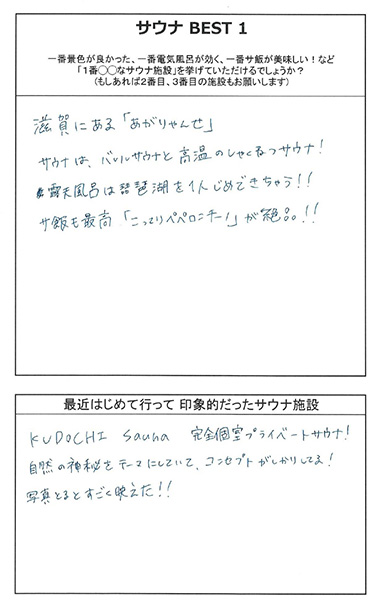 サウナ BEST 1
一番景色が良かった、一番電気風呂が効く、一番サ飯が美味しい！など
「1番◯◯なサウナ施設」を挙げていただけるでしょうか？
(もしあれば2番目、3番目の施設もお願いします)
滋賀にある「あがりゃんせ」
サウナは、バレルサウナと高温のしゃくねつサウナ！
露天風呂は琵琶湖を1人じめできちゃう！！
サ飯も最高「こってりペペロンチーノ」が絶品！！
最近はじめて行って 印象的だったサウナ施設
KUDOCHI Sauna 完全個室プライベートサウナ！
自然の神秘をテーマにしていて、コンセプトがしっかりしてる！
写真とるとすごく映えた！！